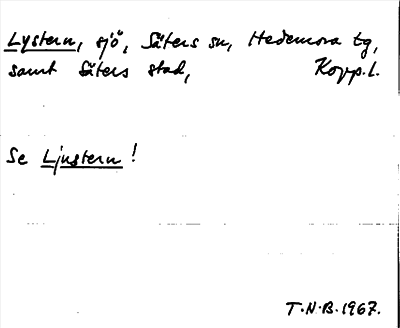 Lystern, sjö, Säters sn, Hedemora tg,
samt Säters stad, Kopp.l.
Se Ljustern!
T.N.B. 1967.